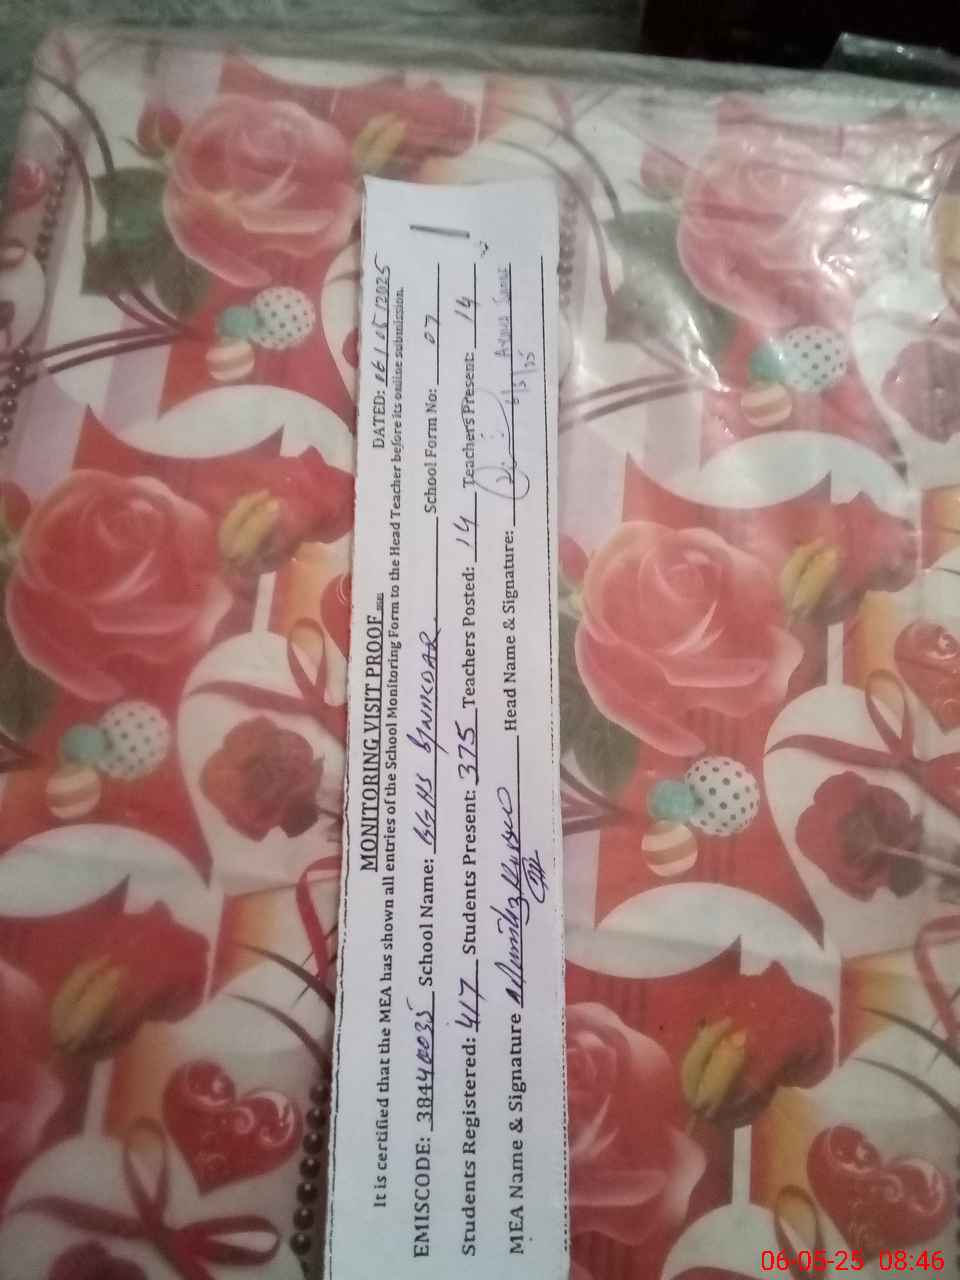 MONITORING VISIT PROOF
DATED: 06/05/2025
It is certified that the MEA has shown all entries of the School Monitoring Form to the Head Teacher before its online submission.
EMISCODE: 38440035 School Name: GGHS School Form No: 07
Students Registered: 417 Students Present: 375 Teachers Posted: 14 Teachers Present: 14
MEA Name & Signature Head Name & Signature: 6/5/25
06-05-25 08:46